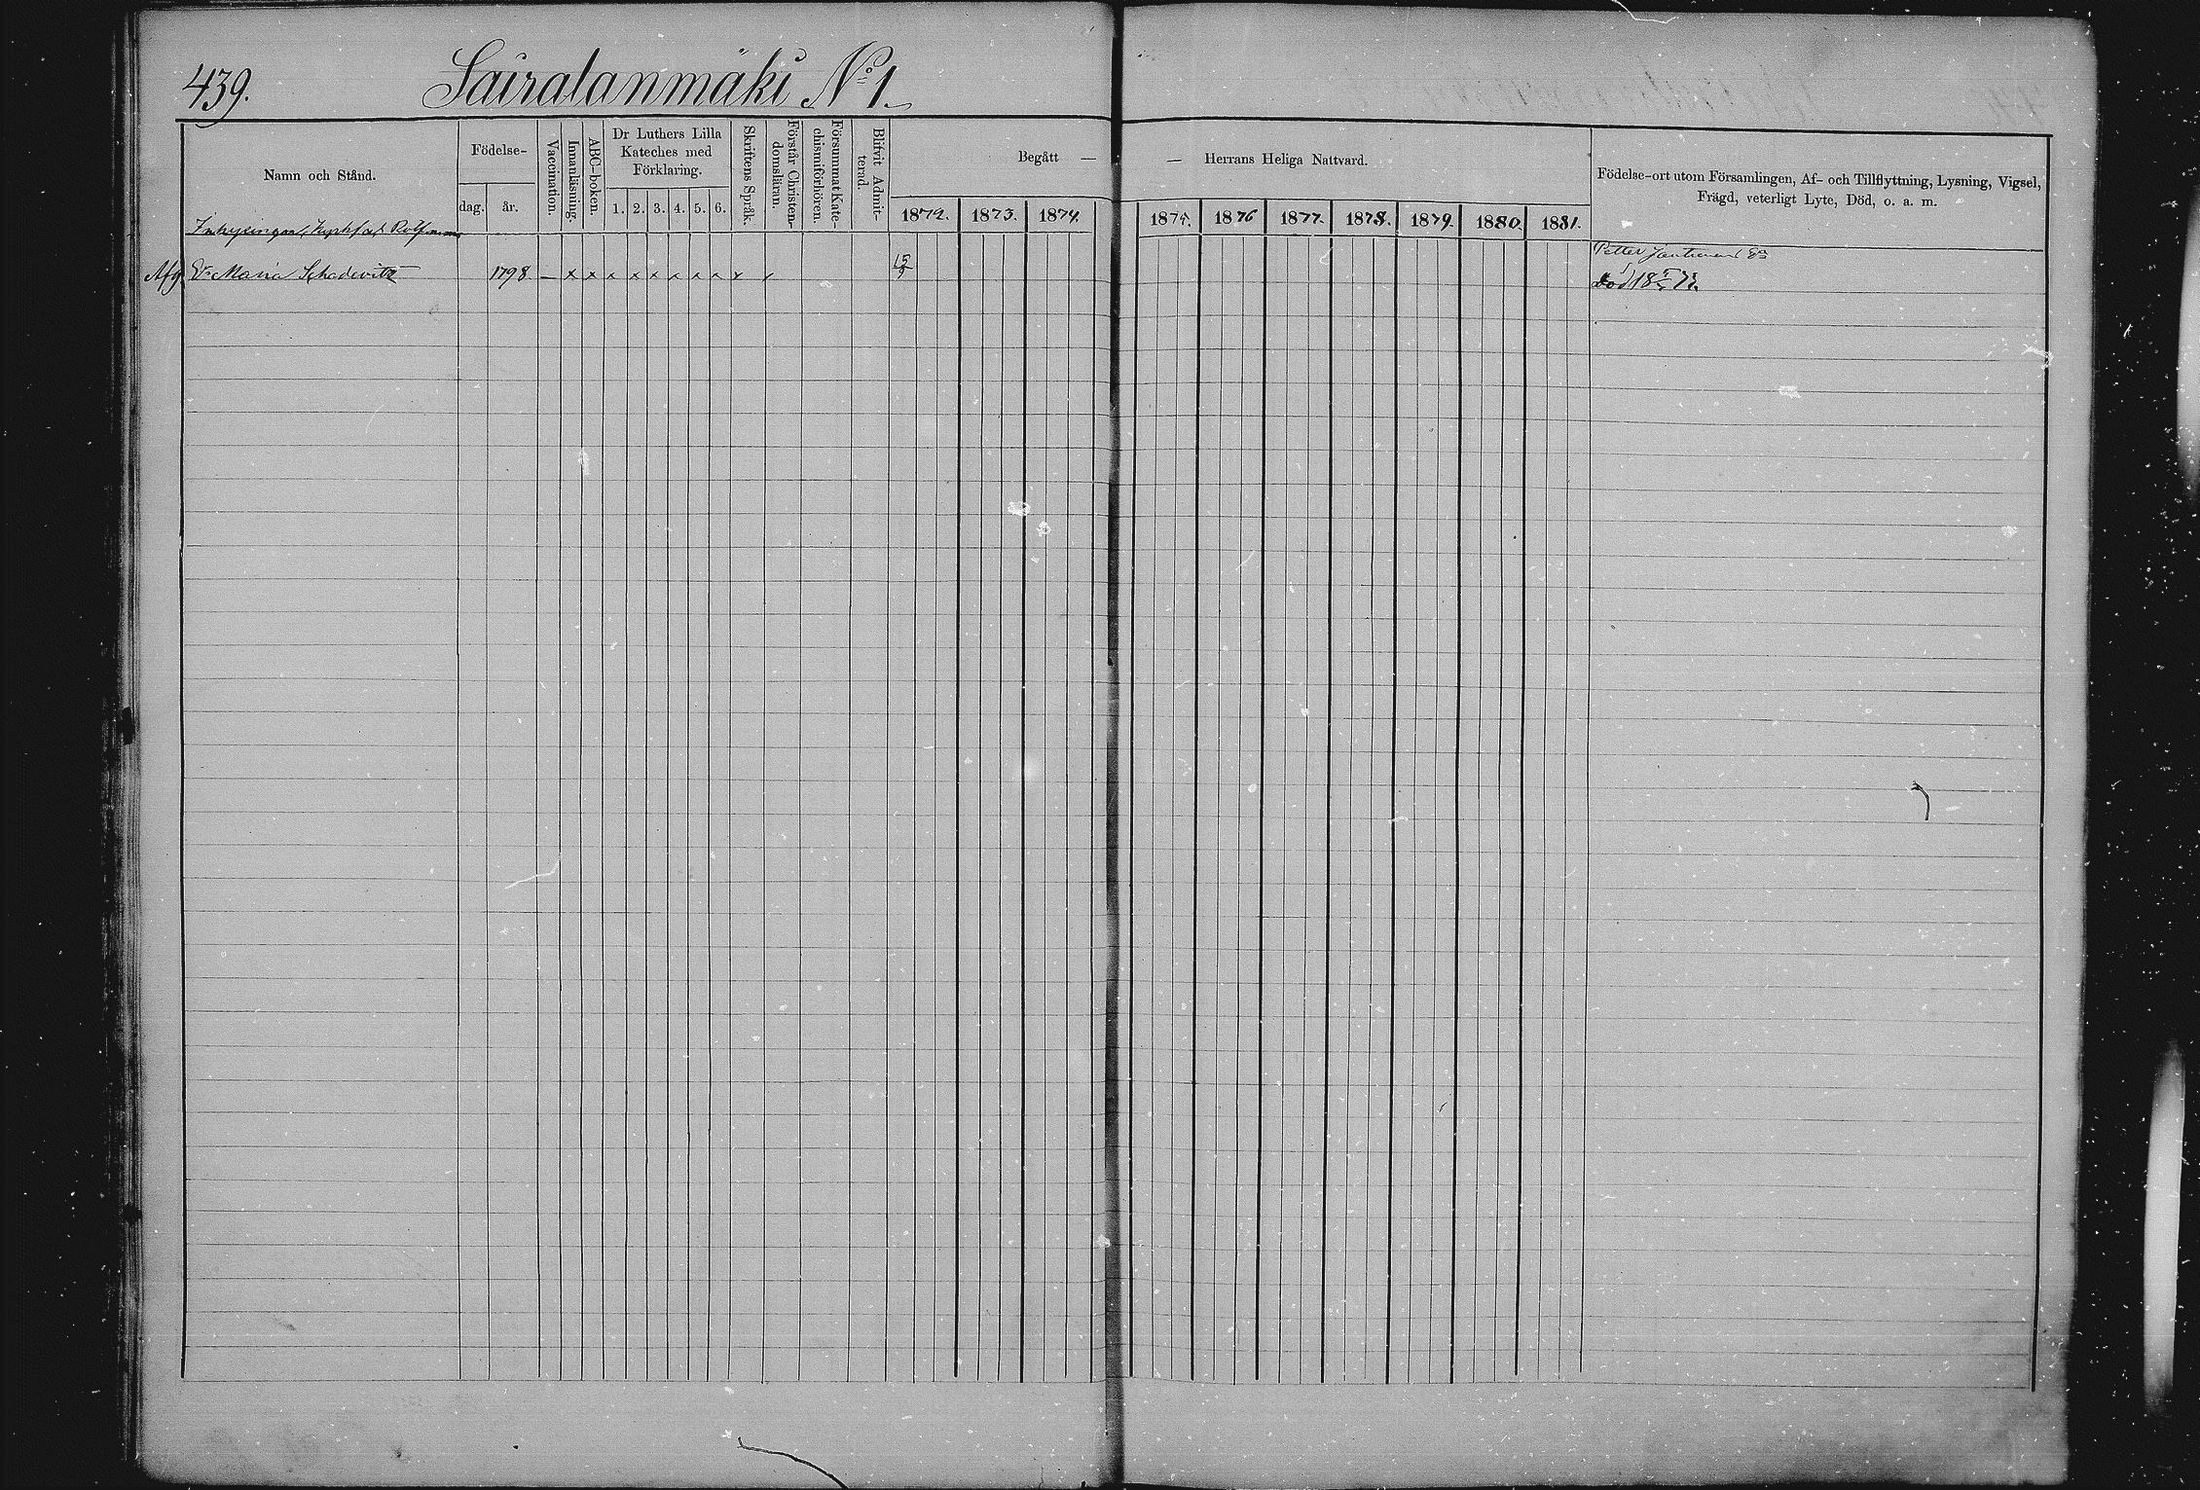 439. Sairalanmäki No 1.
Namn och Stånd.
Födelse-
dag. år.
Vaccination.
Innanläsning.
ABC-boken.
Dr Luthers Lilla
Kateches med
Förklaring.
1. 2. 3. 4. 5. 6.
Skriftens Språk.
Förstår Christen-
domsläran.
Försummat Kate-
chismiförhören.
Blifvit Admit-
terad.
Begått — — Herrans Heliga Nattvard.
1872. 1873. 1874. 1875. 1876 1877. 1878. 1879. 1880. 1881.
Födelse-ort utom Församlingen, Af- och Tillflyttning, Lysning, Vigsel,
Frägd, veterligt Lyte, Död, o. a. m.
Petter
Afg. Maria Schadevitz 1798. — x x x x x x x x x 15/9 Död 18